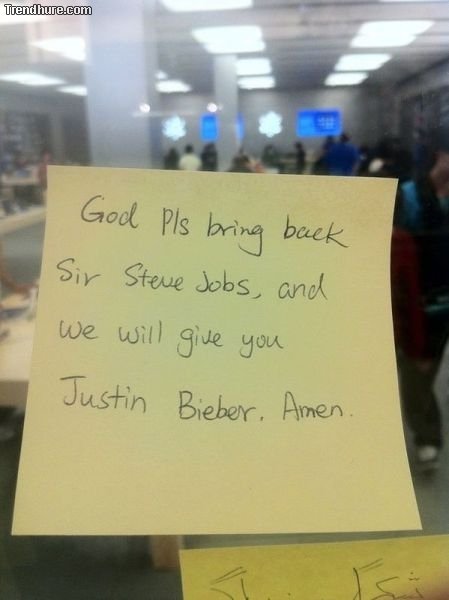 Trendhure.com
God Pls bring back
Sir Steve Jobs, and
we will give you
Justin Bieber. Amen.